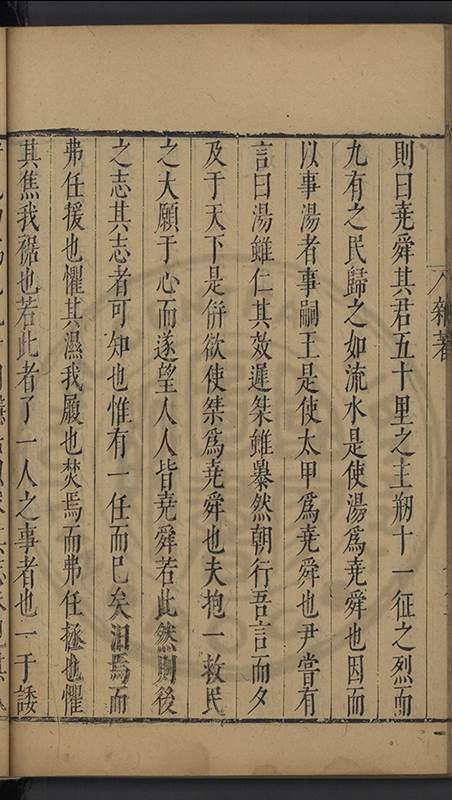 雜著
則曰堯舜其君五十里之主剏十一征之烈而
九有之民歸之如流水是使湯為堯舜也因而
以事湯者事嗣王是使太甲為堯舜也尹嘗有
言曰湯雖仁其效遲桀雖暴然朝行吾言而夕
及于天下是併欲使桀為堯舜也夫抱一救民
之大願于心而遂望人人皆堯舜若此然則後
之志其志者可知也惟有一任而已矣汨焉而
弗任援也懼其濕我履也焚焉而弗任拯也懼
其焦我裾也若此者了一人之事者也一于諉